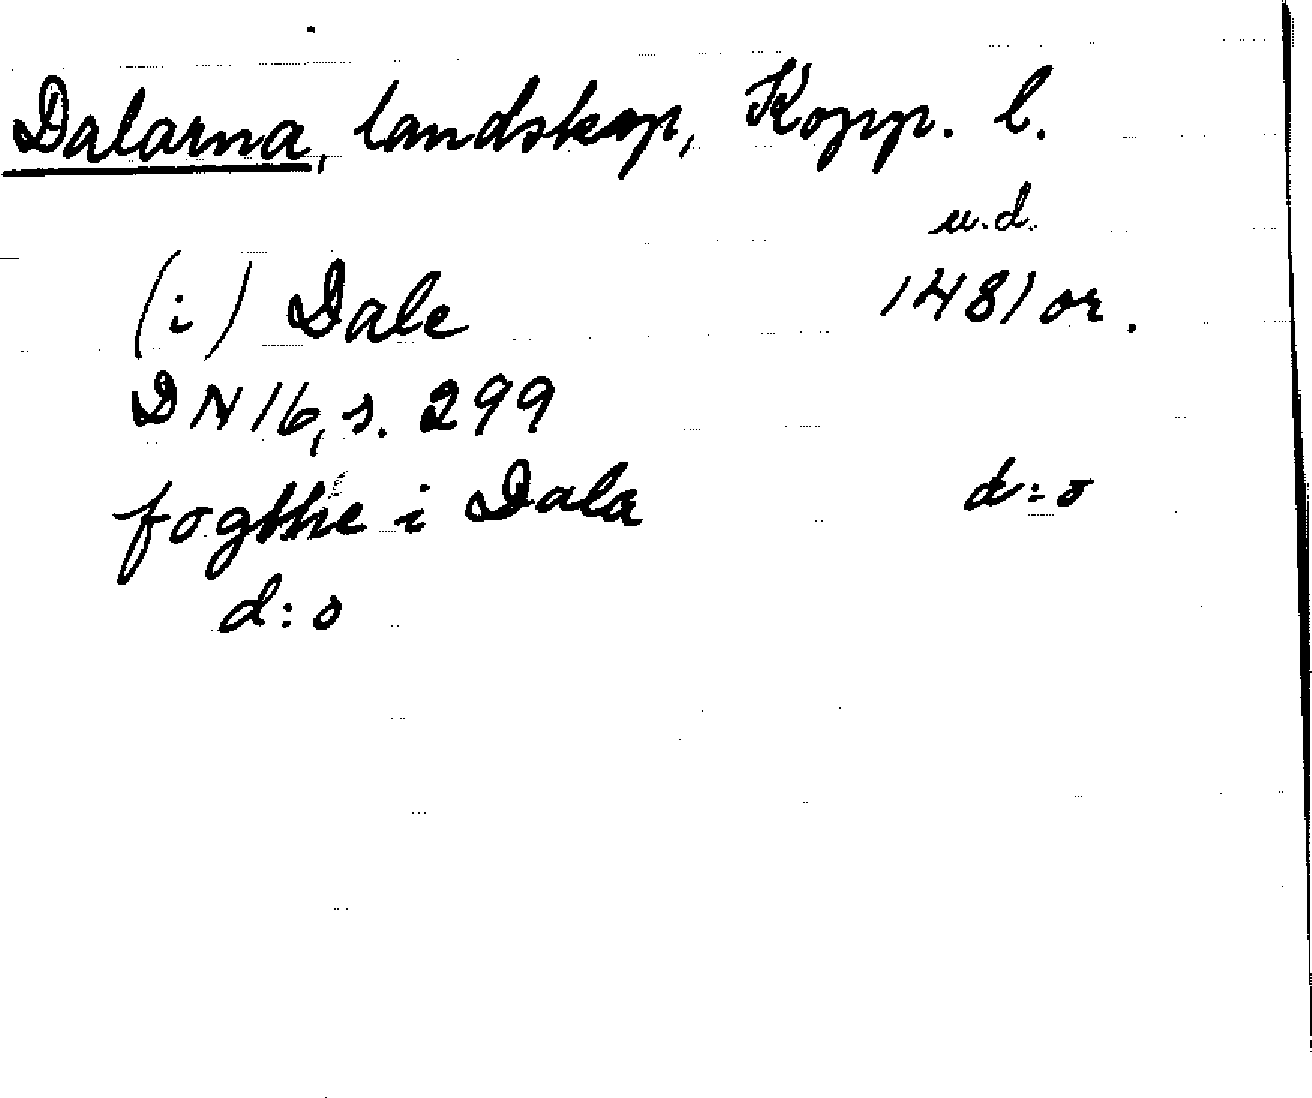 Dalarna, landskap, Kopp. l.
u.d.
(i) Dale 1481 or.
DN 16, s. 299
fogthe i Dala d:o
d:o